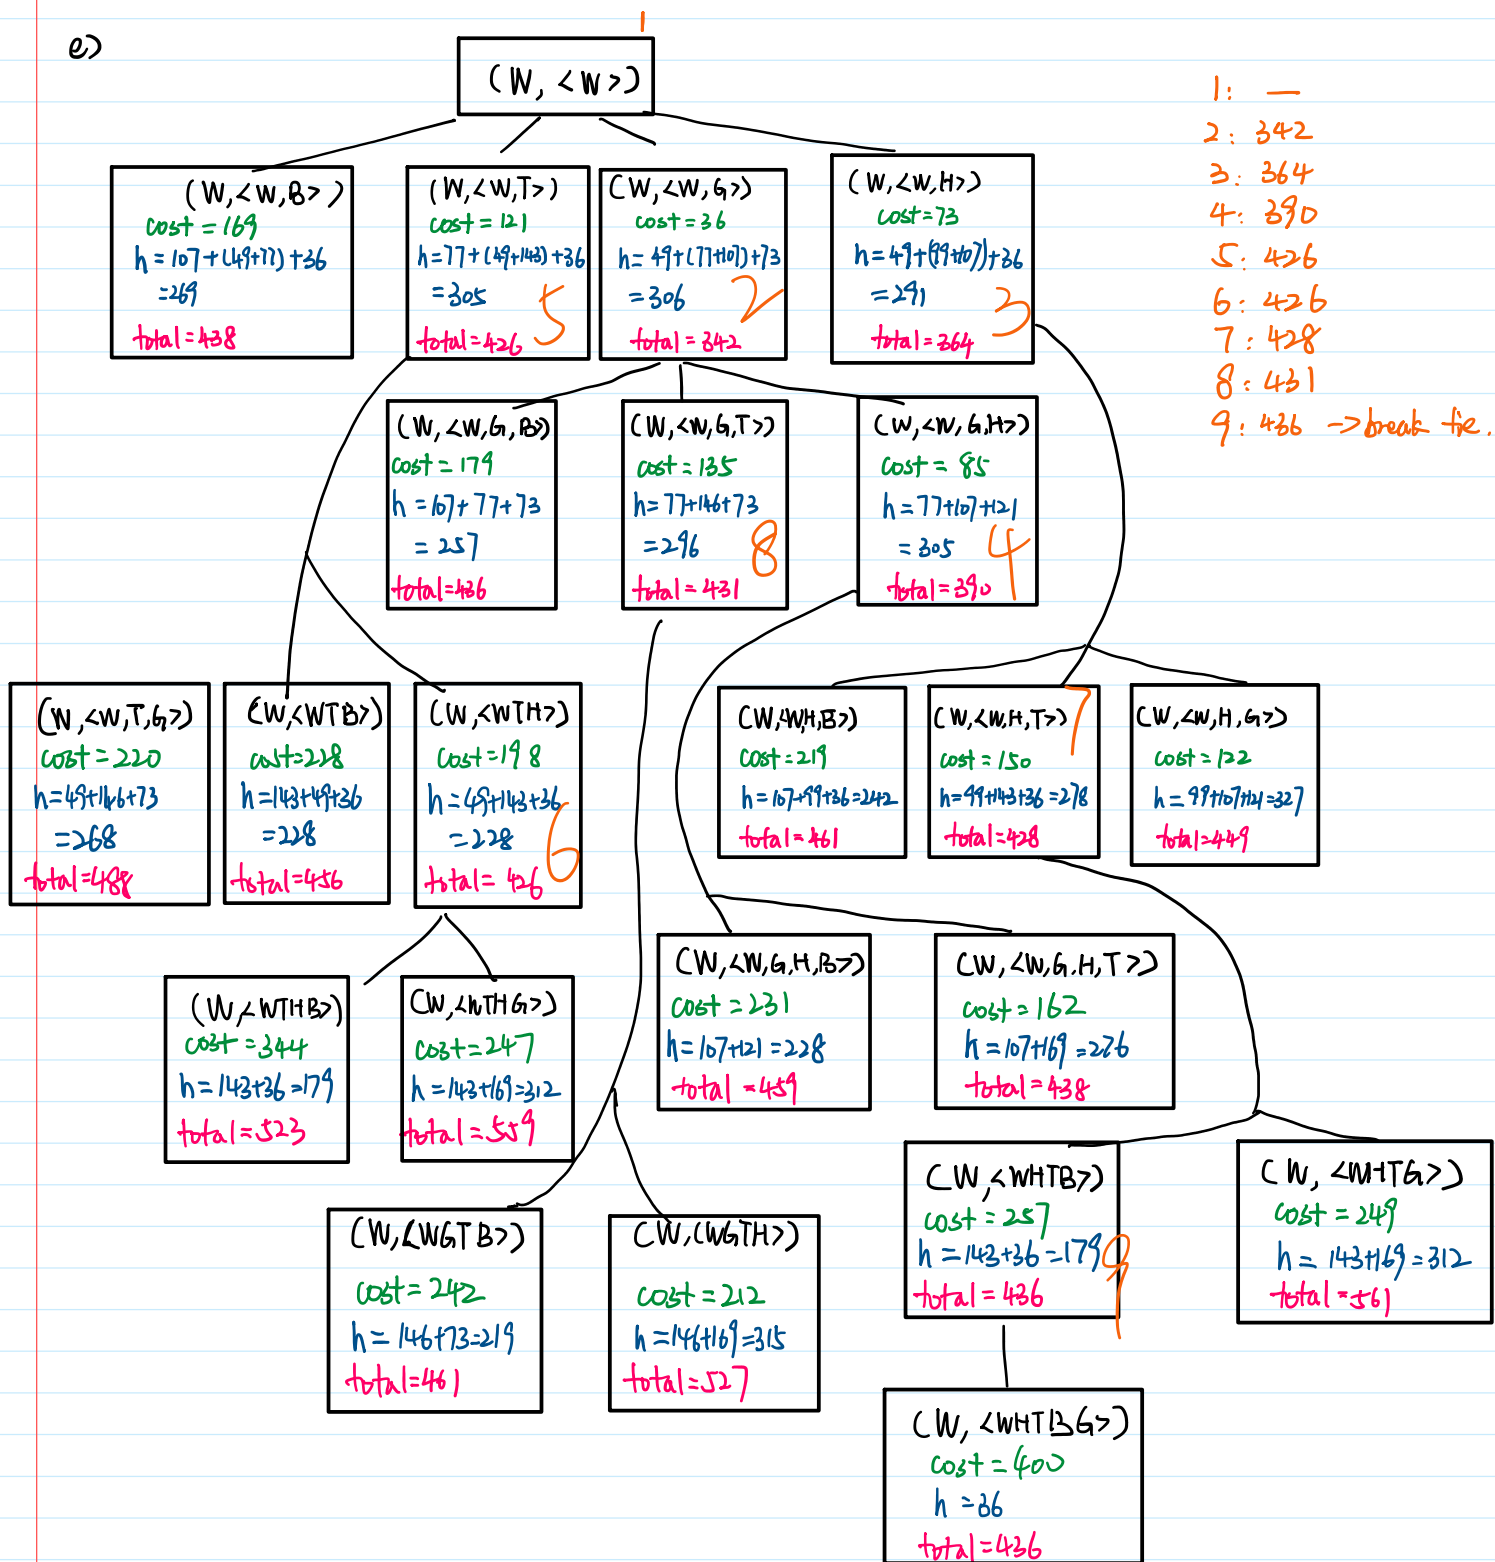 e)
1
(W, <W>)
1: —
2: 342
3: 364
4: 390
5: 426
6: 426
7: 428
8: 431
9: 436 -> break tie.
(W, <W,B>)
cost = 169
h = 107 + (49+77) + 36
= 269
total = 438
(W, <W,T>)
cost = 121
h = 77 + (49+143) + 36
= 305
5
total = 426
(W, <W,G>)
cost = 36
h = 49 + (77+107) + 73
= 306
2
total = 342
(W, <W,H>)
cost = 73
h = 49 + (99+107) + 36
= 291
3
total = 364
(W, <W,G,B>)
cost = 179
h = 107 + 77 + 73
= 257
total = 436
(W, <W,G,T>)
cost = 135
h = 77 + 146 + 73
= 296
8
total = 431
(W, <W,G,H>)
cost = 85
h = 77 + 107 + 121
= 305
4
total = 390
(W, <W,T,G>)
cost = 220
h = 49 + 146 + 73
= 268
total = 488
(W, <WTB>)
cost = 228
h = 143 + 49 + 36
= 228
total = 456
(W, <WTH>)
cost = 198
h = 49 + 143 + 36
= 228
6
total = 426
(W, <WH,B>)
cost = 219
h = 107 + 99 + 36 = 242
total = 461
7
(W, <W,H,T>)
cost = 150
h = 99 + 143 + 36 = 278
total = 428
(W, <W,H,G>)
cost = 122
h = 99 + 107 + 121 = 327
total = 449
(W, <WTHB>)
cost = 344
h = 143 + 36 = 179
total = 523
(W, <WTHG>)
cost = 247
h = 143 + 169 = 312
total = 559
(W, <W,G,H,B>)
cost = 231
h = 107 + 121 = 228
total = 459
(W, <W,G,H,T>)
cost = 162
h = 107 + 169 = 276
total = 438
(W, <WGTB>)
cost = 242
h = 146 + 73 = 219
total = 461
(W, (WGTH>)
cost = 212
h = 146 + 169 = 315
total = 527
(W, <WHTB>)
cost = 257
h = 143 + 36 = 179
9
total = 436
(W, <WHTG>)
cost = 249
h = 143 + 169 = 312
total = 561
(W, <WHTBG>)
cost = 400
h = 36
total = 436